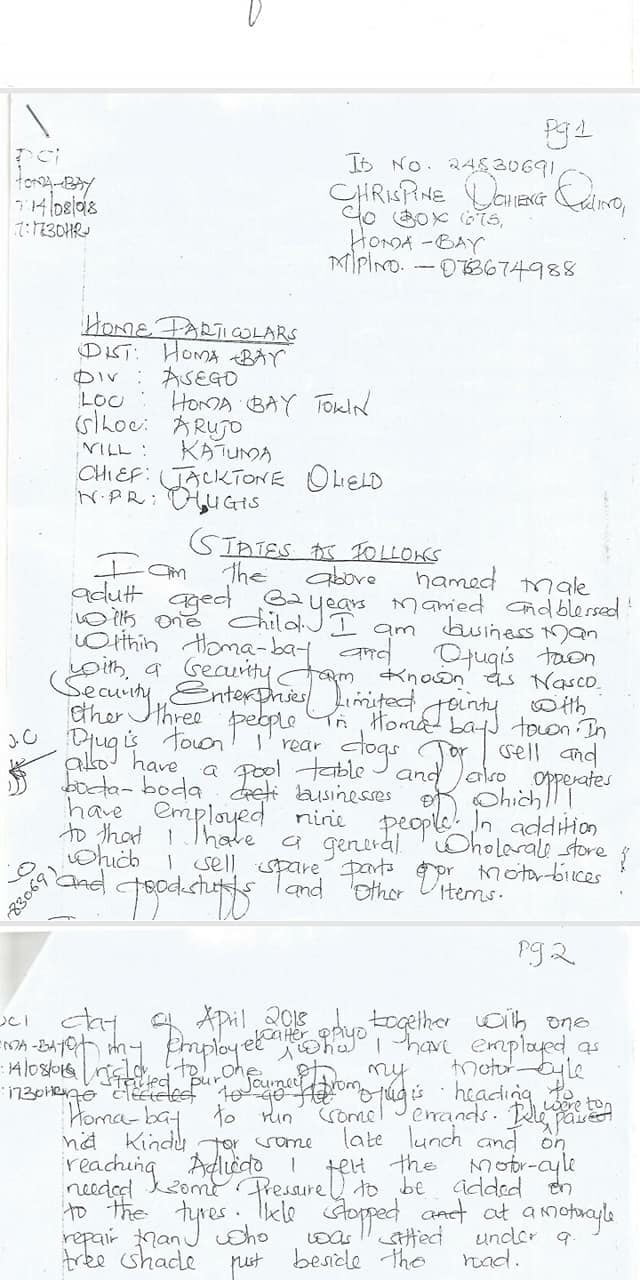 Pg 1
DCI
HOMA-BAY
14/08/018
T: 1730HRS
ID NO. 24830691
CHRISPINE OCHIENG
C/O BOX 675,
HOMA-BAY
M/P/NO. — 073674988
HOME PARTICULARS
DIST: HOMA-BAY
DIV : ASEGO
LOC : HOMA BAY TOWN
S/LOC: ARUJO
VILL : KATUMA
CHIEF: JACKTONE OLIELO
N.P.R: OYUGIS
STATES AS FOLLOWS
I am the above named male
adult aged 32 years married and blessed
with one child. I am business man
within Homa-bay and Oyugis town
with a security farm known as Nasco
Security Enterprises Limited jointy with
other three people in Homa-bay town. In
J.C Oyugis town I rear dogs for sell and
also have a pool table and also opperates
boda-boda businesses of which I
have employed nine people. In addition
to that I have a general wholesale store
which I sell spare parts for motor-bikes
and foodstuffs and other items.
Pg 2
DCI day of April 2018 I together with one
HOMA-BAY of my employee Opiyo who I have employed as
14/08/018 a rider to one of my motor-cyle
1730HRS started our journey from Oyugis heading to
Homa-bay to run some errands. We were to
Kindu for some late lunch and on
reaching Adiedo I felt the motor-cyle
needed some pressure to be added on
to the tyres. We stopped at a motorcyle
repair man who was sitted under a
tree shade just beside the road.